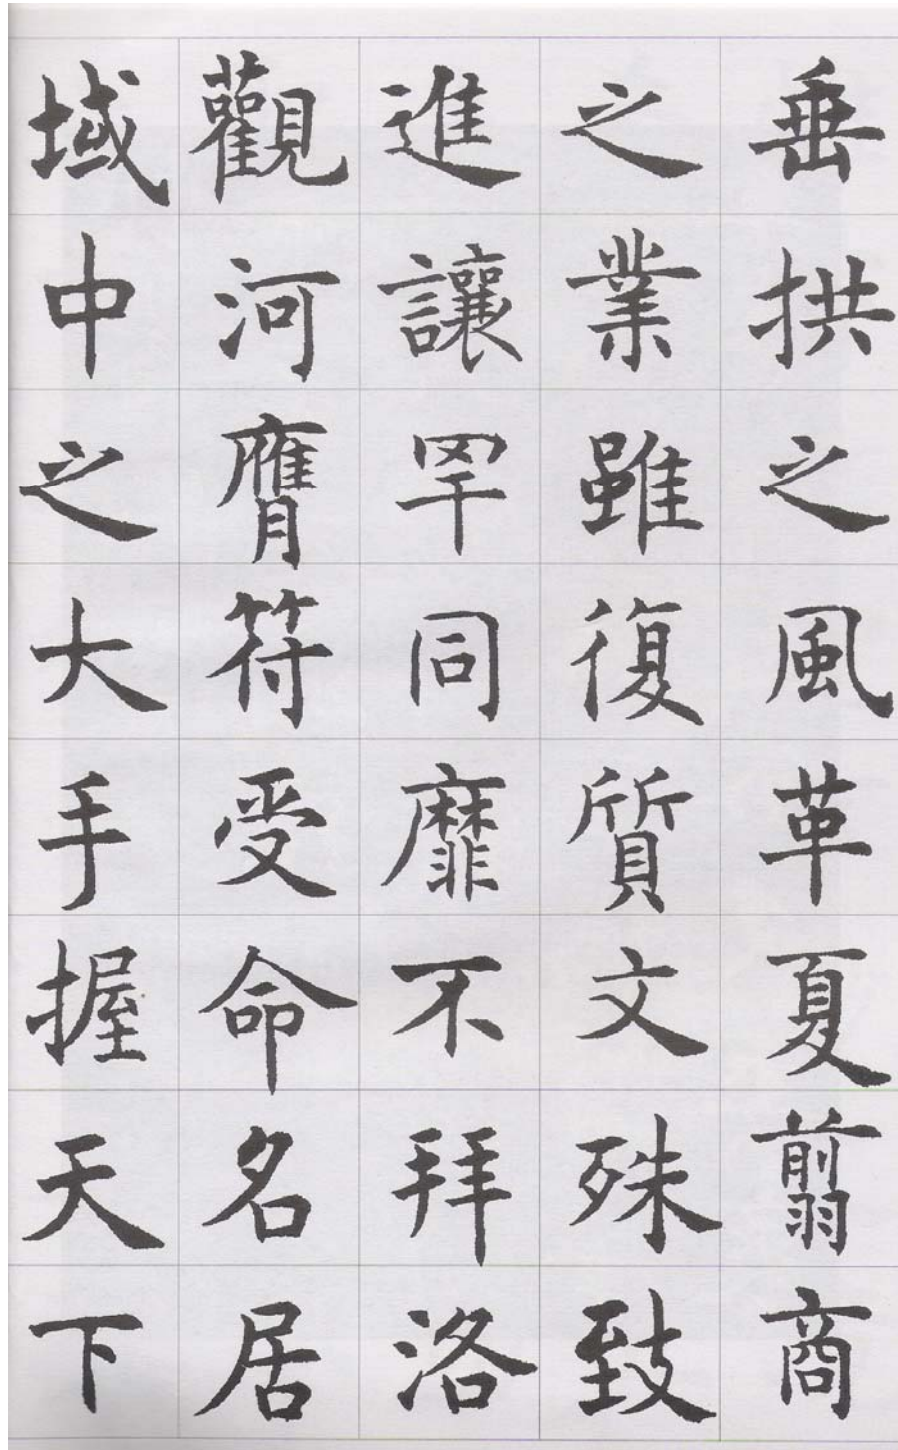 垂拱之風革夏翦商
之業雖復質文殊致
進讓罕同靡不拜洛
觀河膺符受命名居
域中之大手握天下